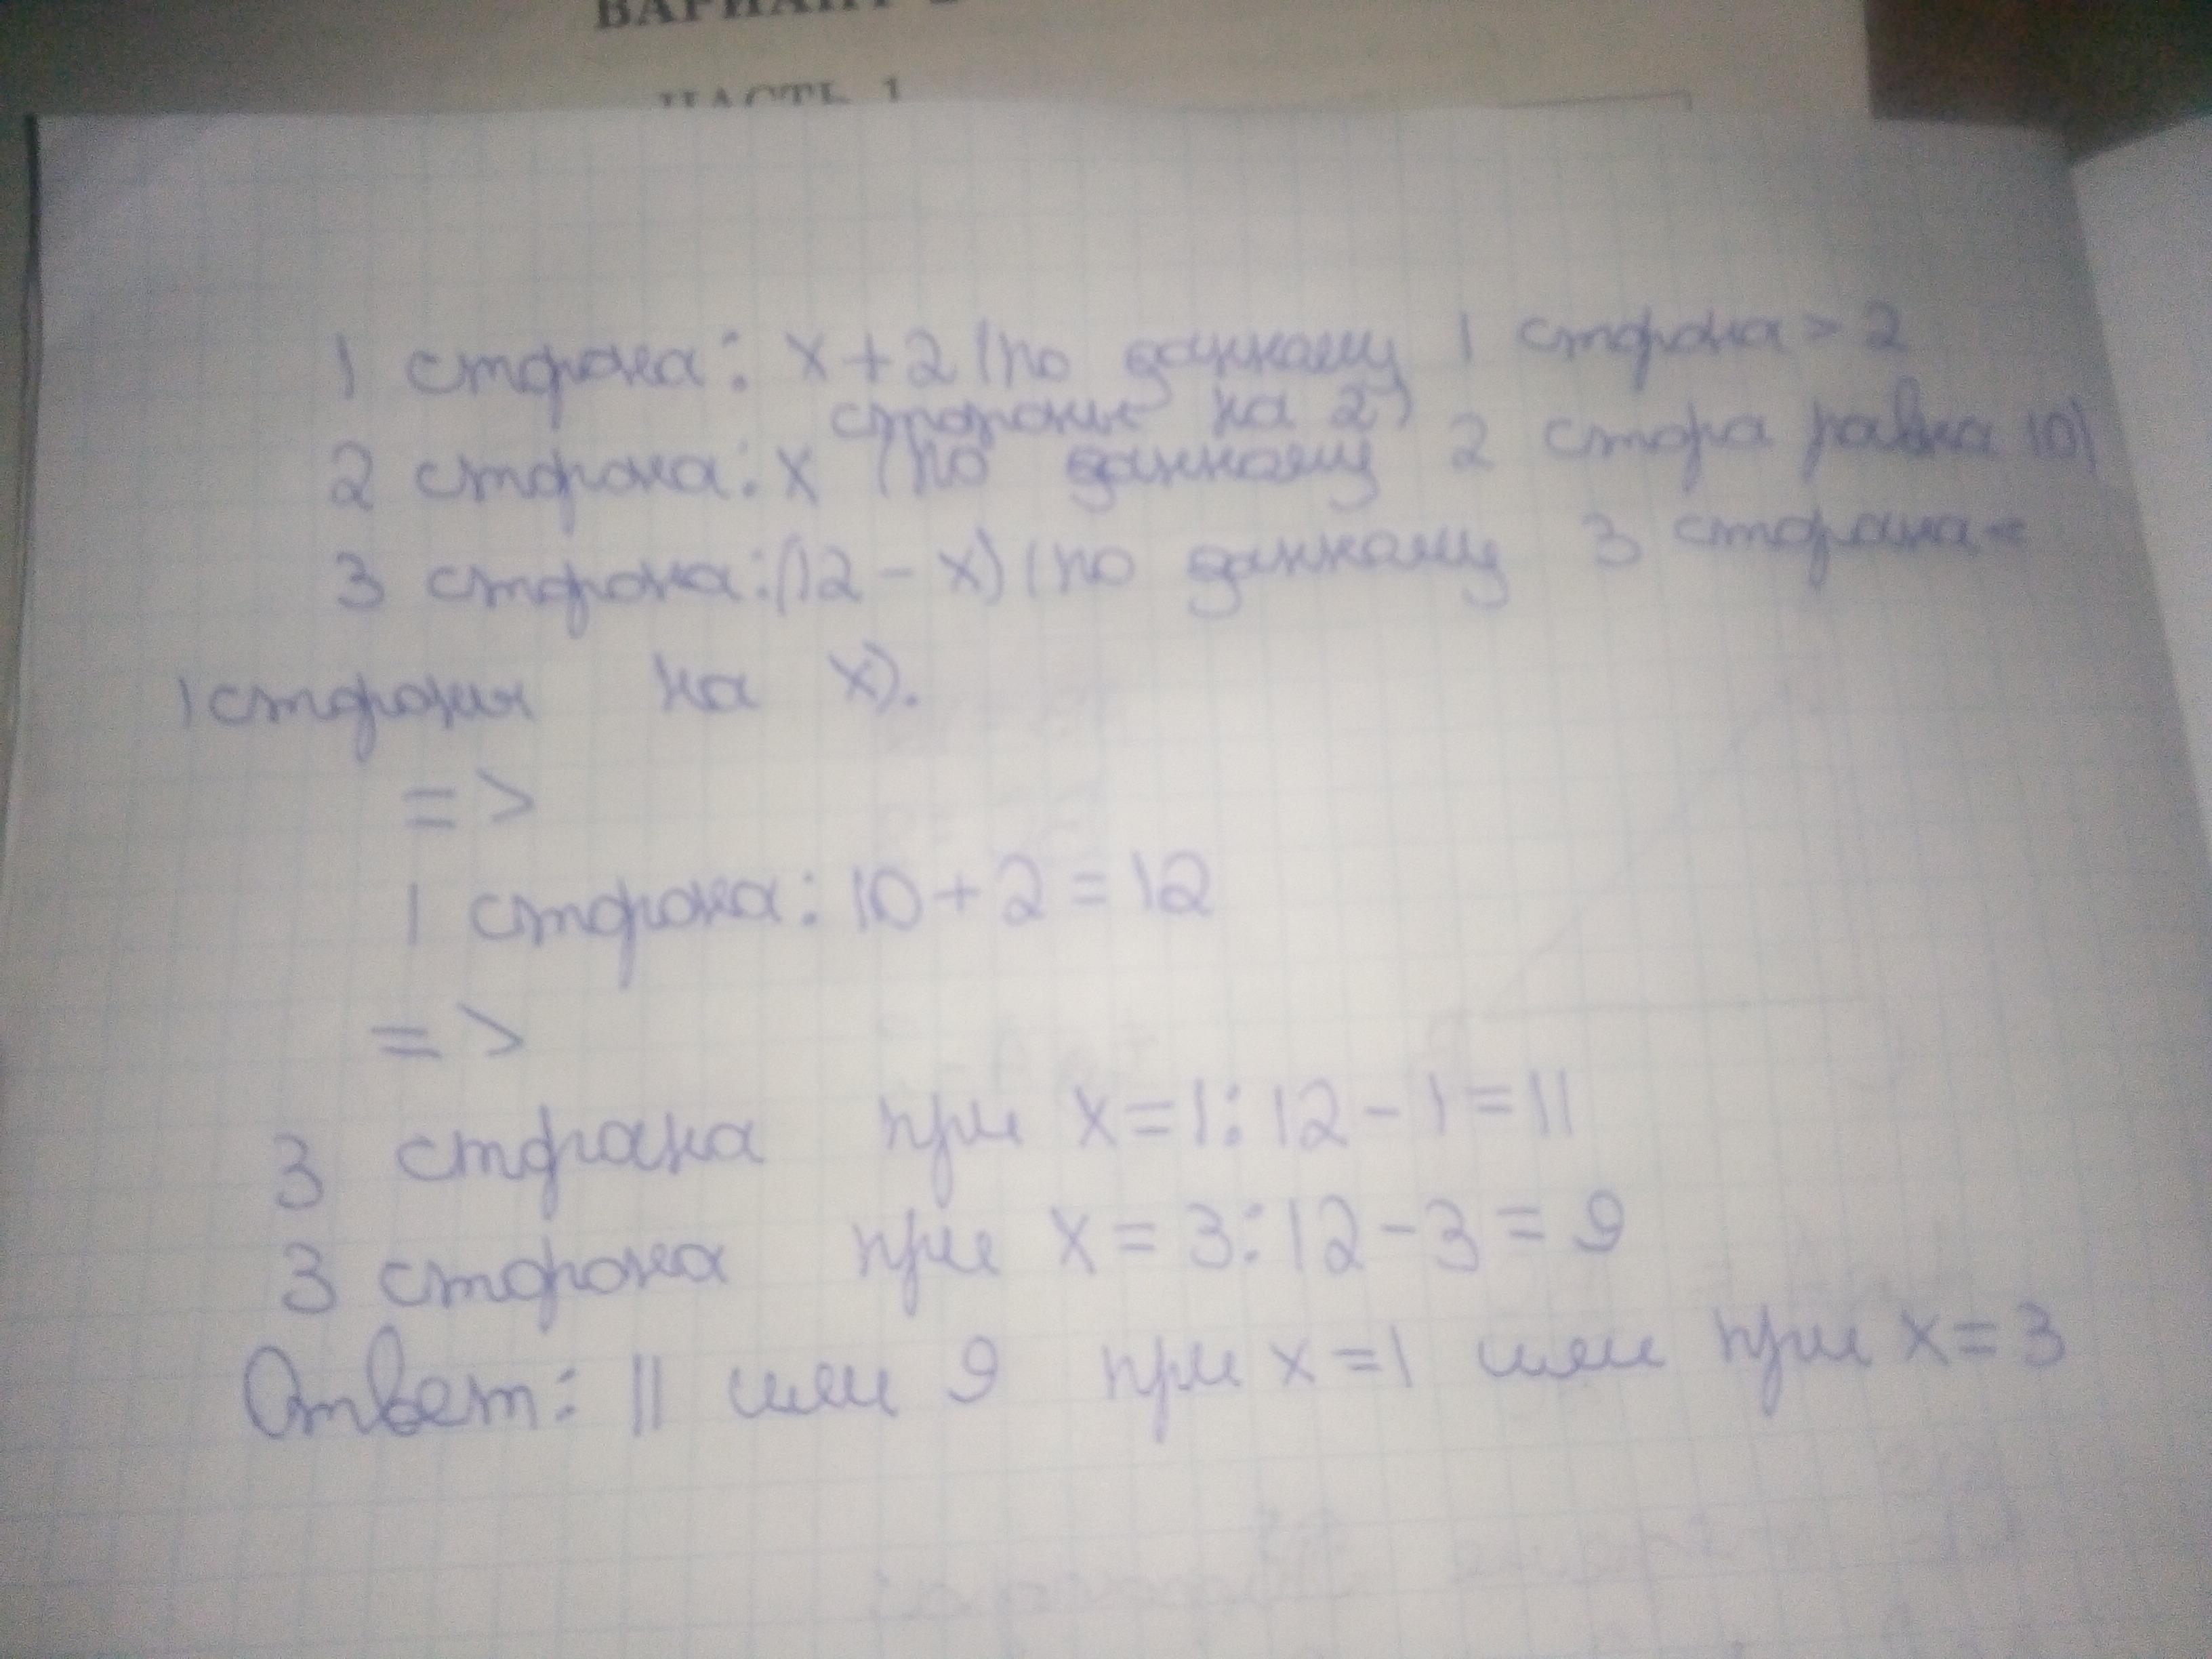 ВАРИАНТ
ЧАСТЬ 1
1 сторона: x+2 (по данному 1 сторона > 2
стороны на 2)
2 сторона: x (по данному 2 стора равна 10)
3 сторона: (12 - x) (по данному 3 сторона <
1 стороны на x).
=>
1 сторона: 10 + 2 = 12
=>
3 сторона при x = 1: 12 - 1 = 11
3 сторона при x = 3: 12 - 3 = 9
Ответ: 11 или 9 при x = 1 или при x = 3